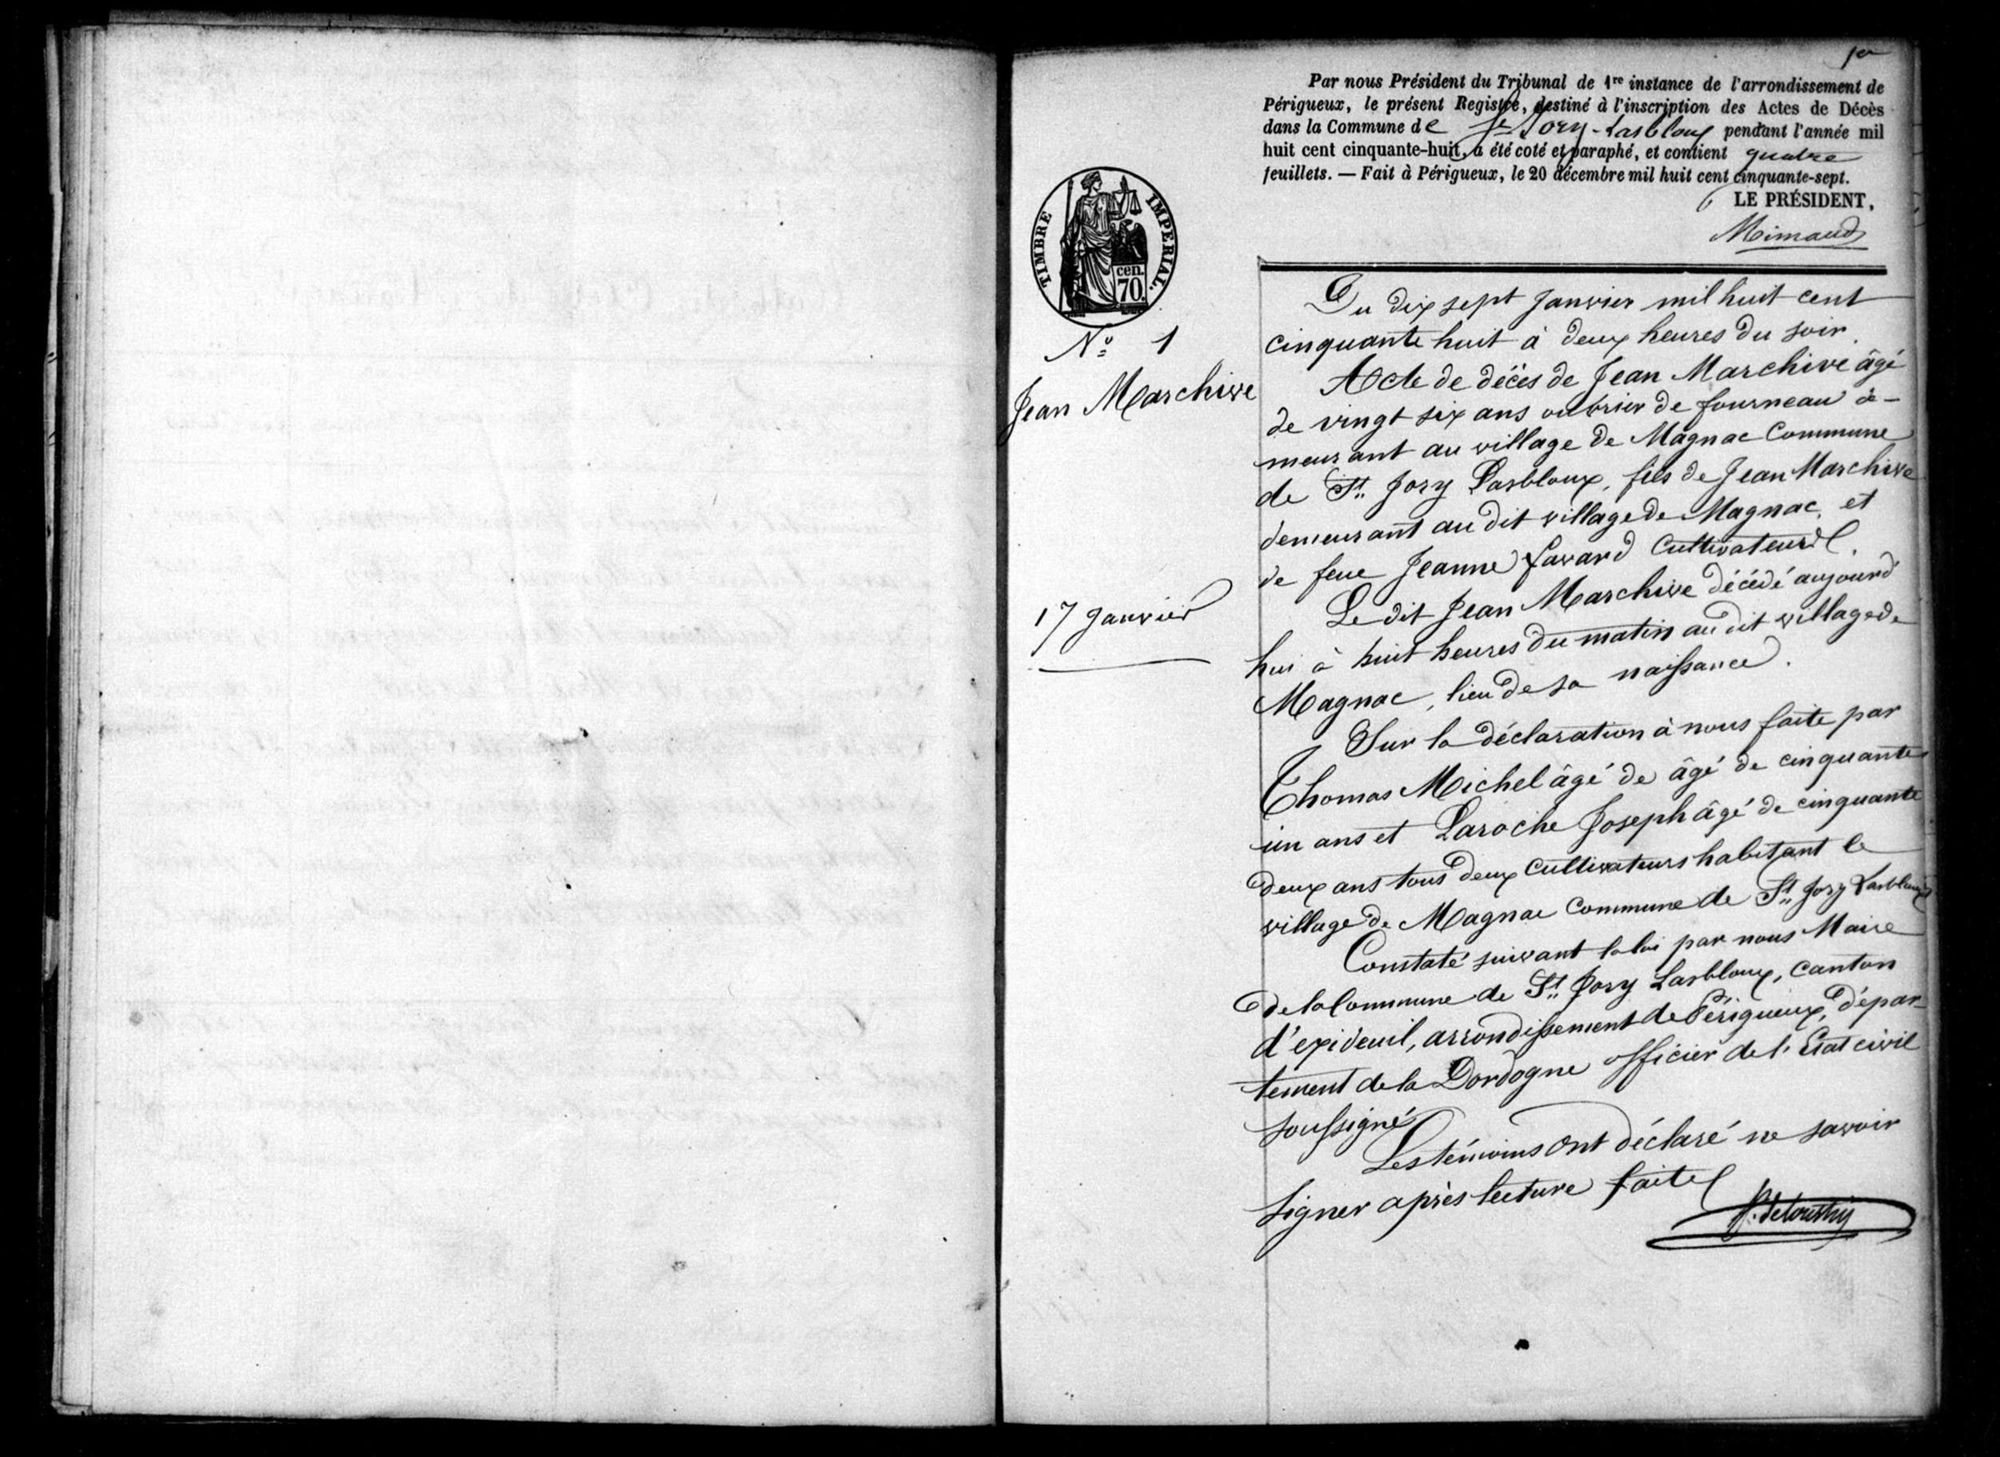 1er
Par nous Président du Tribunal de 1re instance de l'arrondissement de
Périgueux, le présent Registre, destiné à l'inscription des Actes de Décès
dans la Commune de St Jory-Lasbloux pendant l'année mil
huit cent cinquante-huit, a été coté et paraphé, et contient quatre
feuillets. — Fait à Périgueux, le 20 décembre mil huit cent cinquante-sept.
LE PRÉSIDENT,
Mimaud
TIMBRE IMPERIAL.
cen.
70.
No 1
Jean Marchive
17 Janvier
Du dix sept Janvier mil huit cent
cinquante huit à deux heures du soir.
Acte de décès de Jean Marchive âgé
de vingt six ans oubrier de fourneau de-
meurant au village de Magnac Commune
de St Jory Lasbloux, fils de Jean Marchive
demeurant au dit village de Magnac, et
de feue Jeanne Favard Cultivateurs.
Le dit Jean Marchive décédé aujourd'
hui à huit heures du matin au dit village de
Magnac, lieu de sa naissance.
Sur la déclaration à nous faite par
Thomas Michel âgé de âgé de cinquante
un ans et Laroche Joseph âgé de cinquante
deux ans tous deux cultivateurs habitant le
village de Magnac Commune de St Jory Lasbloux
Constaté suivant la loi par nous Maire
de la Commune de St Jory Lasbloux, canton
d'exideuil, arrondissement de Périgueux, dépar-
tement de la Dordogne officier de l'Etat civil
soussigné
Les témoins ont déclaré ne savoir
signer après lecture faite